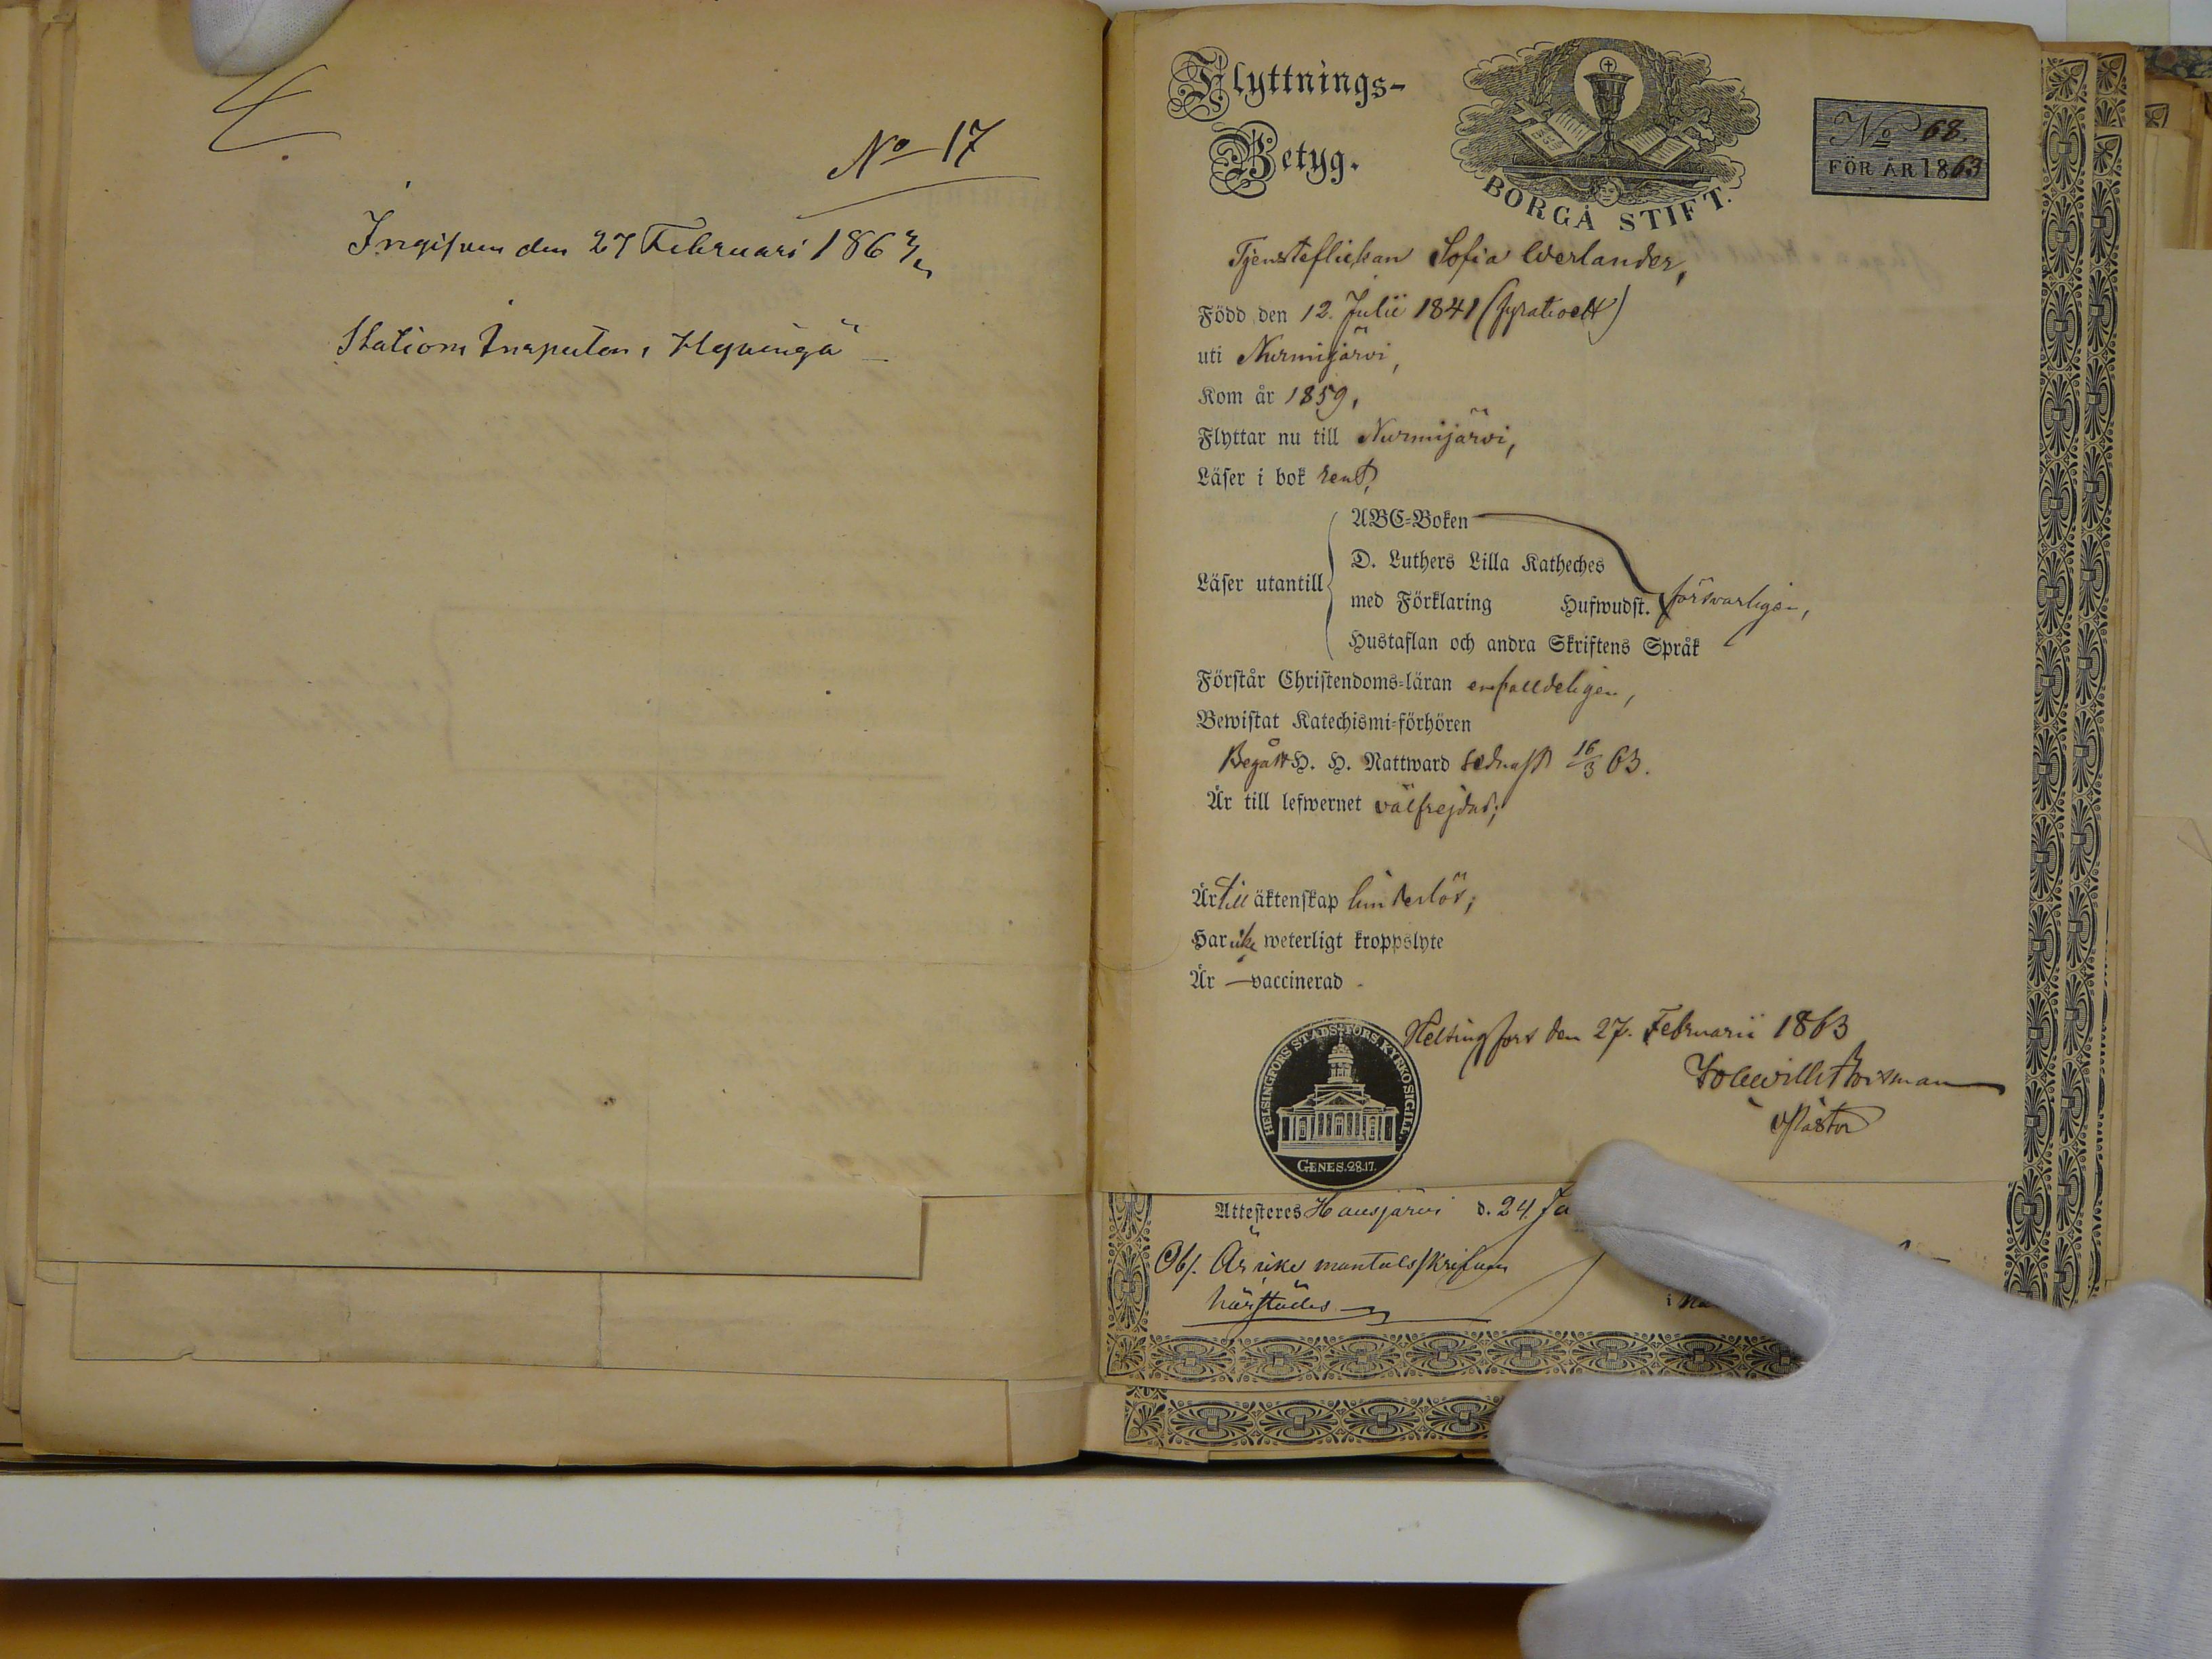 No 17
Ingifven den 27 Februari 1863
Stations Inspectorn, Hyvingä
Flyttnings-
Betyg.
BORGÅ STIFT.
No 68.
FÖR ÅR 1863
Tjensteflickan Sofia Werlander,
Född den 12. Julii 1841 (fyratioett)
uti Nurmijärvi,
Kom år 1859,
Flyttar nu till Nurmijärvi,
Läser i bok rent,
Läser utantill
ABC-Boken
D. Luthers Lilla Katheches
med Förklaring Hufwudst. försvarligen,
Hustaflan och andra Skriftens Språk
Förstår Christendoms-läran enfalldeligen,
Bewistat Katechismi-förhören
Begått H. H. Nattward sednast 16/3 63.
Är till lefwernet välfrejdad;
Är till äktenskap hinderlös;
Har icke weterligt kroppslyte
Är — vaccinerad
Helsingfors den 27. Februarii 1863
Pastor
HELSINGFORS STADS-FÖRS. KYRKOSIGILL.
GENES. 28.17.
Attesteres Hausjärvi d. 24 Ja
Obs. Är icke mantalsskrifven
härstädes